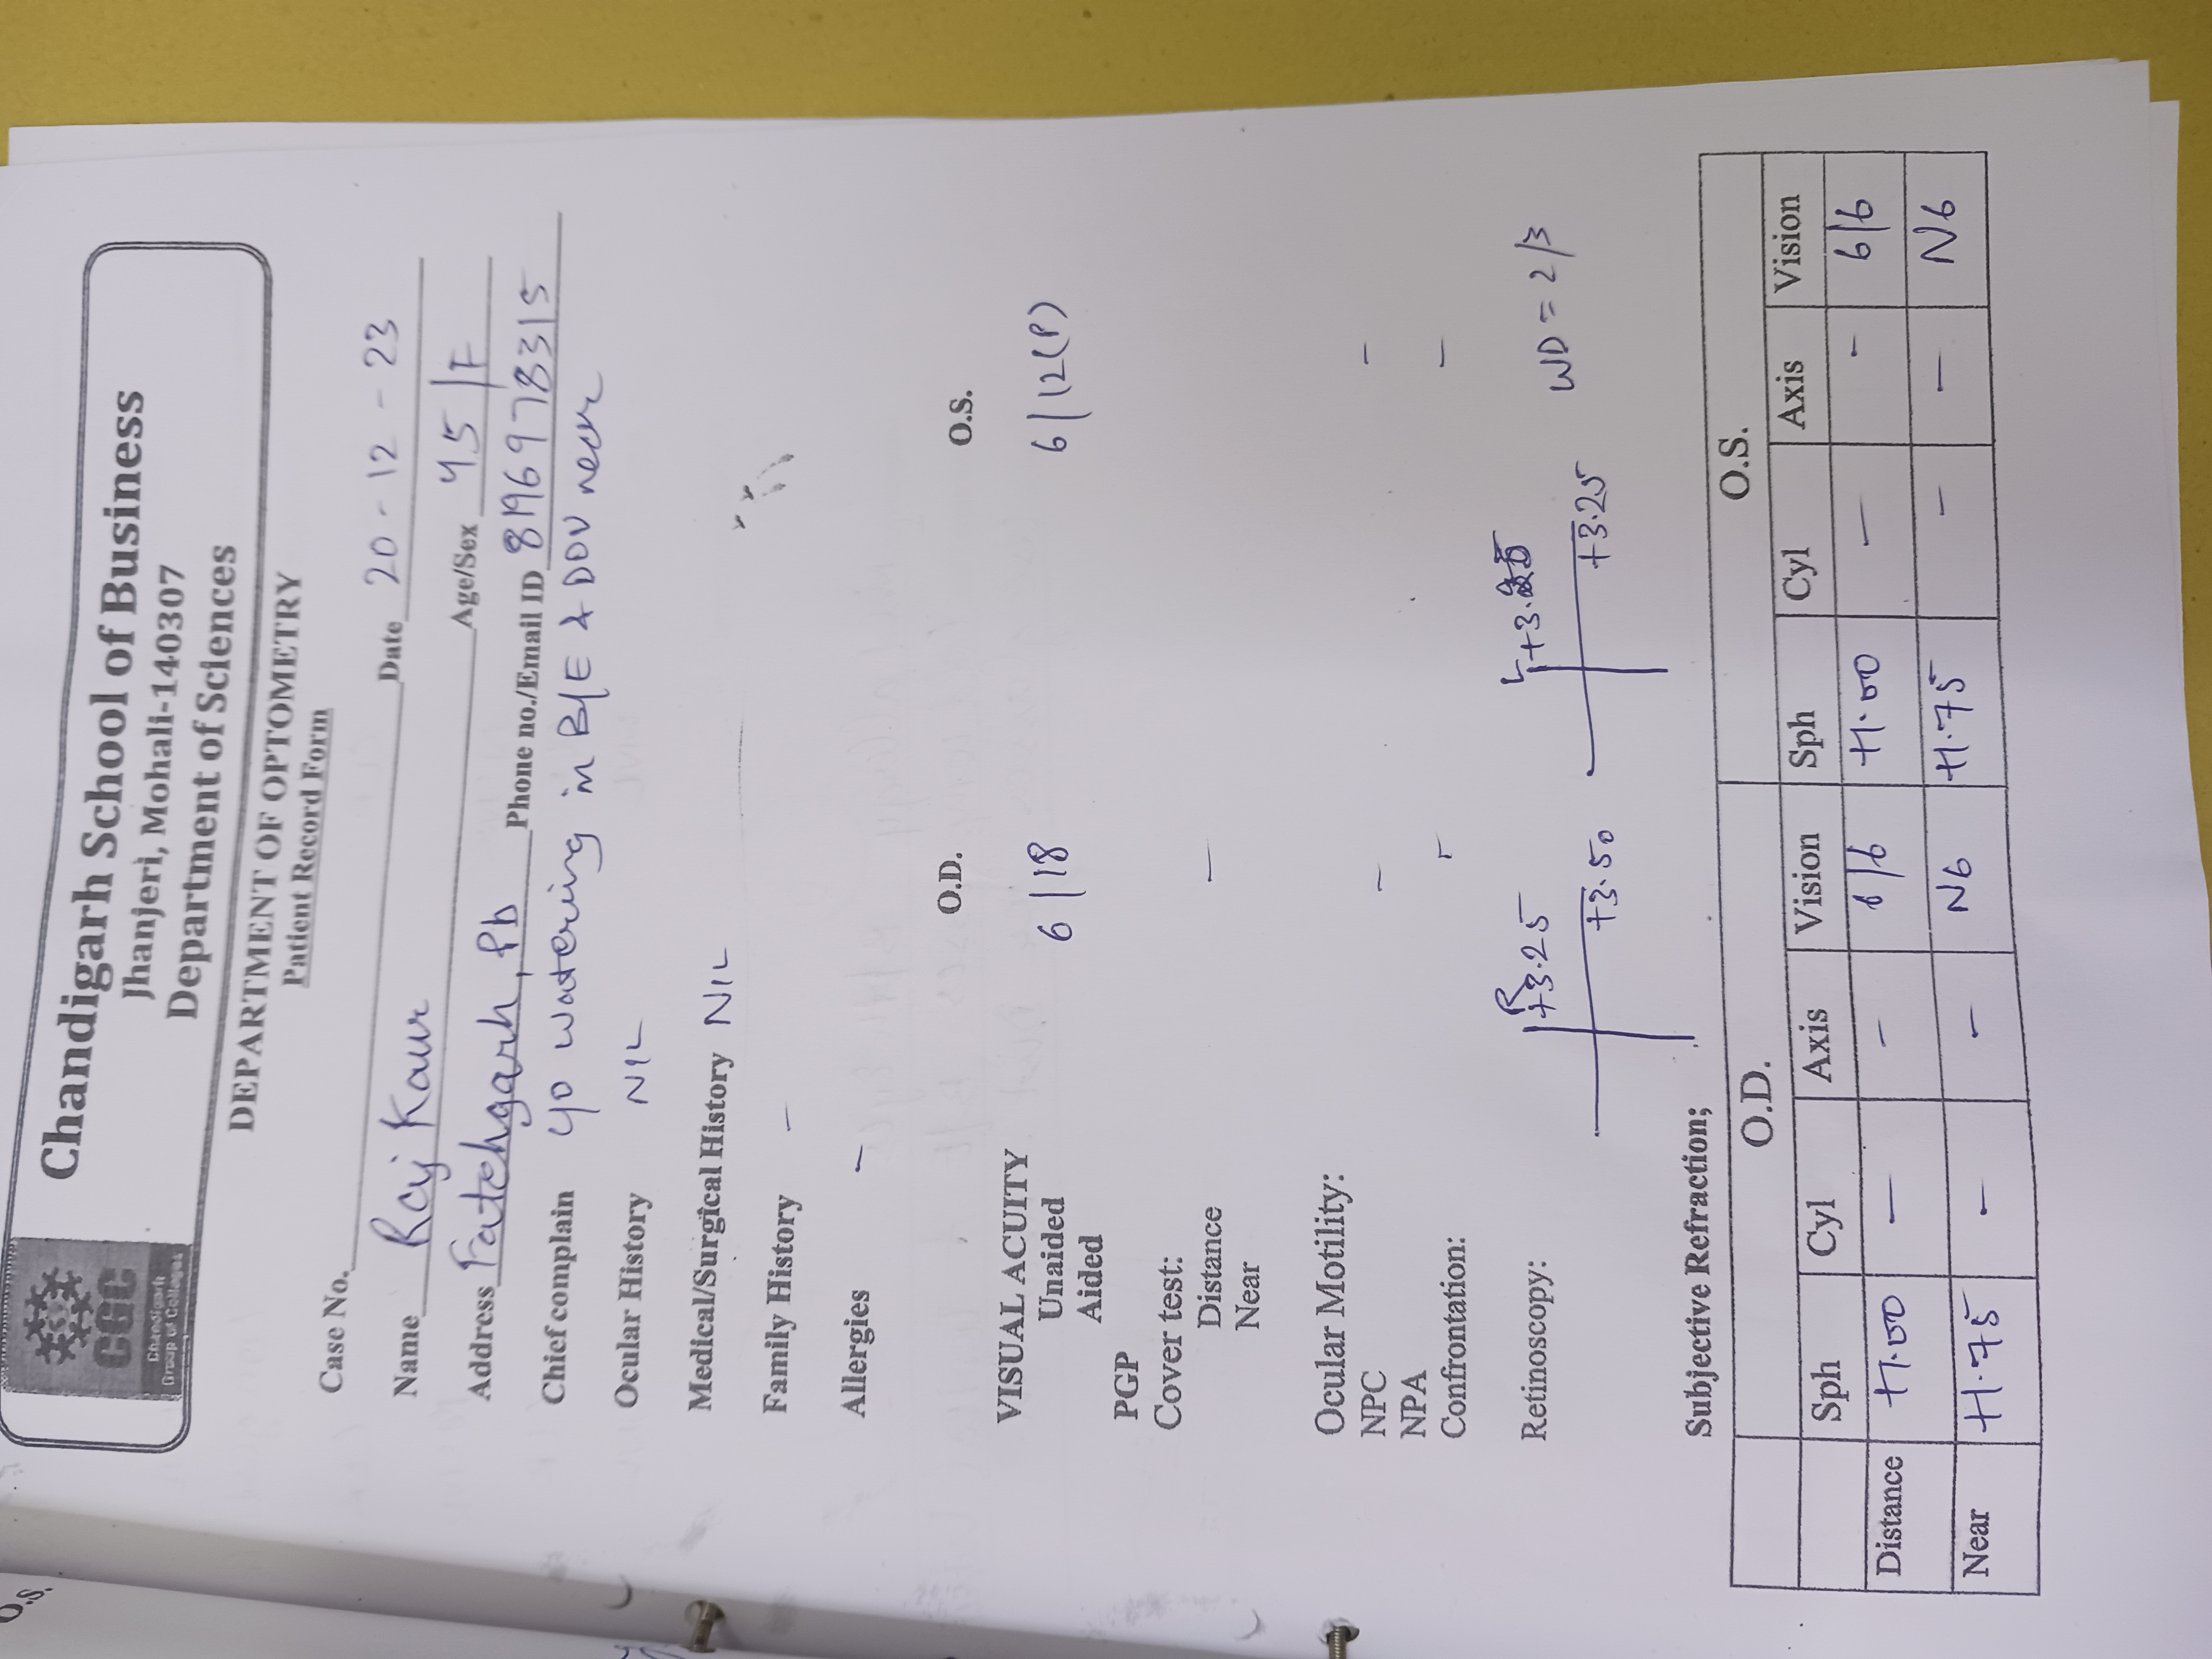 O.S.
CGC
Chandigarh
Group of Colleges
Chandigarh School of Business
Jhanjeri, Mohali-140307
Department of Sciences
DEPARTMENT OF OPTOMETRY
Patient Record Form
Case No.
Date 20-12-23
Name Raj Kaur
Age/Sex 45/F
Address Fatehgarh, Pb Phone no./Email ID 8196978315
Chief complain Y/O Watering in B/E & DOV near
Ocular History NIL
Medical/Surgical History NIL
Family History -
Allergies -
O.D. O.S.
VISUAL ACUITY
Unaided 6/18 6/12(P)
Aided
PGP
Cover test:
Distance -
Near
Ocular Motility:
NPC - -
NPA
Confrontation: - -
R L
Retinoscopy: +3.25 WD = 2/3
+3.50 +3.25
Subjective Refraction;
O.D. O.S.
Sph Cyl Axis Vision Sph Cyl Axis Vision
Distance +1.00 - - 6/6 +1.00 - - 6/6
Near +1.75 - - N6 +1.75 - - N6